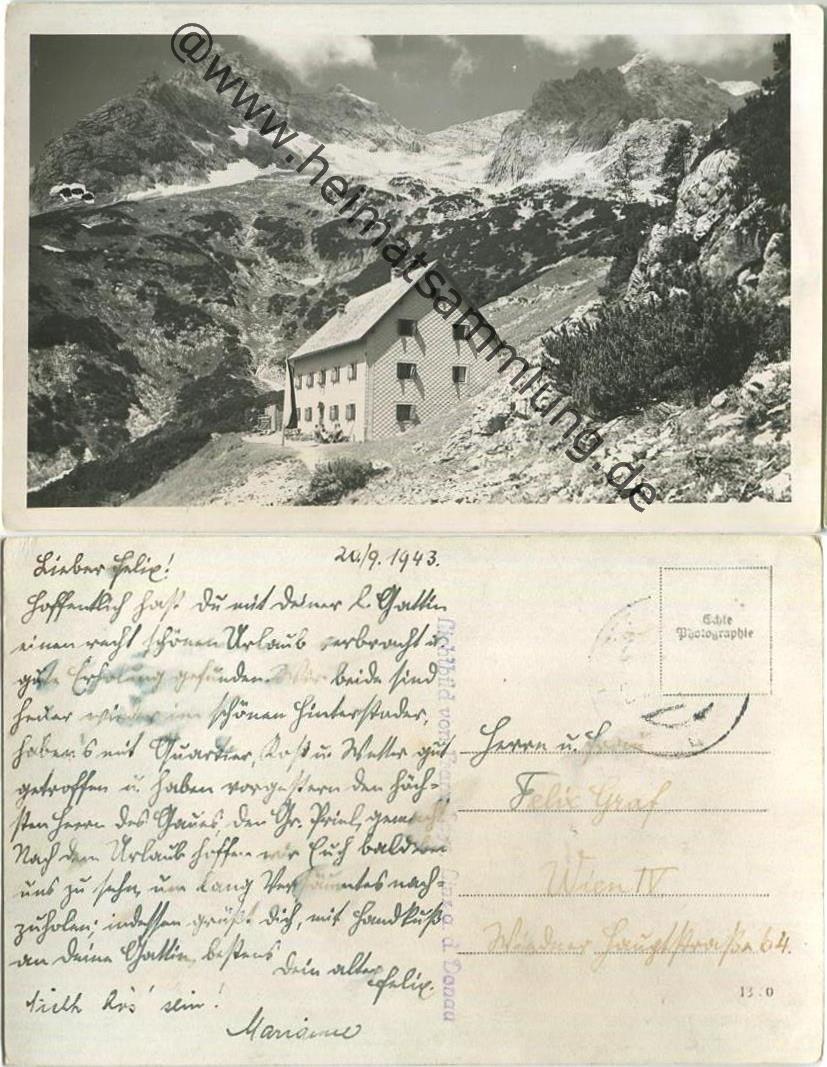 @www.heimatsammlung.de
Lieber Felix! 20/9. 1943.
Hoffentlich hast Du mit deiner l. Gattin
einen recht schönen Urlaub verbracht u.
gute Erholung gefunden. Wir beide sind
heuer wieder im schönen Hinterstoder,
haben's mit Quartier, Kost u. Wetter gut
getroffen u. haben vorgestern den höch-
sten Herrn des Gaues, den Gr. Priel, gemacht.
Nach dem Urlaub hoffen wir Euch bald
uns zu sehn, um lang Versäumtes nach-
zuholen; indessen grüßt Dich, mit Handkuß
an deine Gattin, bestens
Dein alter
Felix.
sein!
Marianne
Lichtbild von Linz a. d. Donau
Echte
Photographie
Herrn u. Frau
Felix Graf
Wien IV
Wiedner Hauptstraße 64.